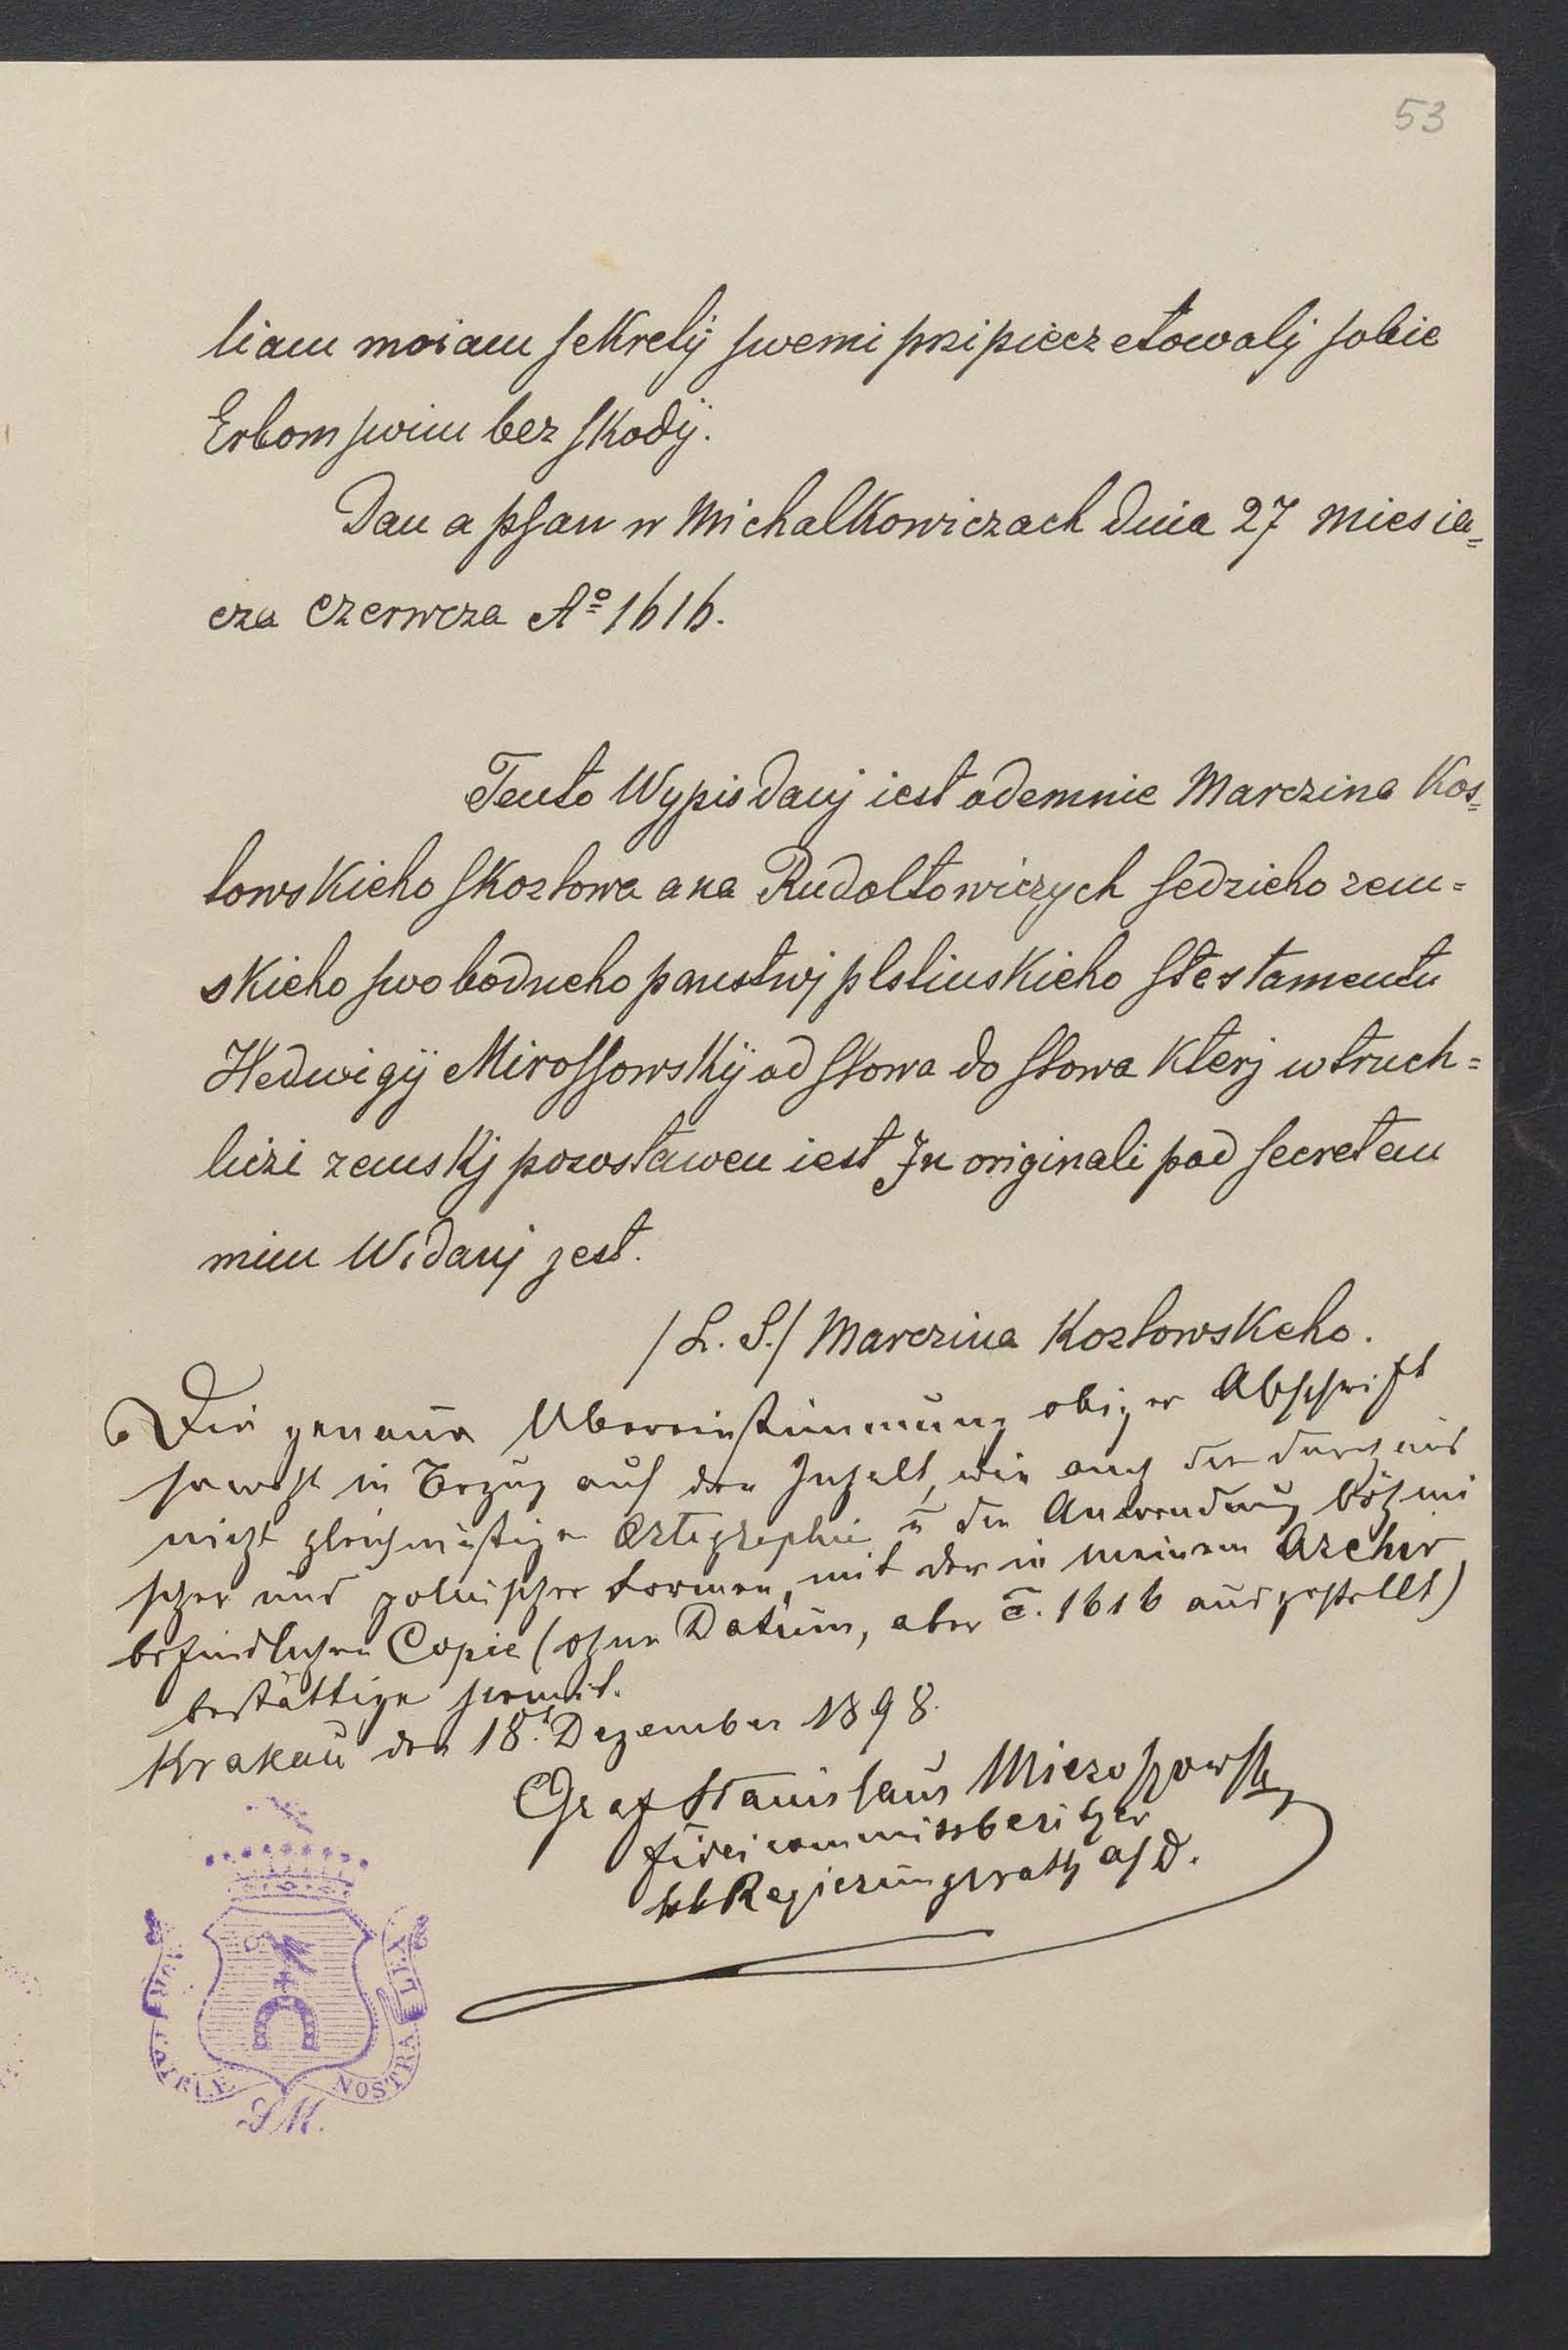 53
liam moiam sekretÿ swemi przipieczetowalj sobie
Erbom swim bez skodÿ.
Dan a psan w Michalkowiczach dnia 27 miesia=
cza czerwcza Aº 1616.
Tento Wypis danj iest odemnie Marczina Kos=
lowskieho skozlowa a na Rudoltowiczych sedzieho zem=
skieho swobodneho panstwj plstinskieho stestamentu
Hedwigÿ Mirossowskÿ od slowa do slowa kterj w truch=
liczi zemskj pozostawen iest In originali pod secretem
mim Widanj jest.
/L. S./ Marczina Kozlowskeho.
Die genaue Übereinstimmung obiger Abschrift
sowohl in Bezug auf den Inhalt, wie auch die durchaus
nicht gleichmäßige Ortographie u die Anwendung böhmi
scher und polnischer Formen, mit der in meinem Archiv
befindlichen Copie (ohne Datum, aber c. 1616 ausgestellt)
bestättige hiemit.
Krakau den 18t. Dezember 1898.
Graf Stanislaus Mieroszowski
Fideicommissbesitzer
kk Regierungsrath a/D.
NOSTRA
S M.